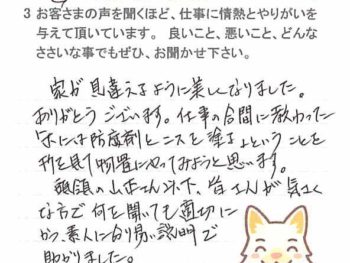 3 お客さまの声を聞くほど、仕事に情熱とやりがいを
与えて頂いています。 良いこと、悪いこと、どんな
ささいな事でもぜひ、お聞かせ下さい。
家が見違えるように美しくなりました。
ありがとうございます。仕事の合間に教わった
には防腐剤とニスを塗るということを
物置にやってみようと思います。
頭領の山正さん以下、皆さんが気さく
な方で何を聞いても適切に
かつ、素人に分り易い説明で
助かりました。